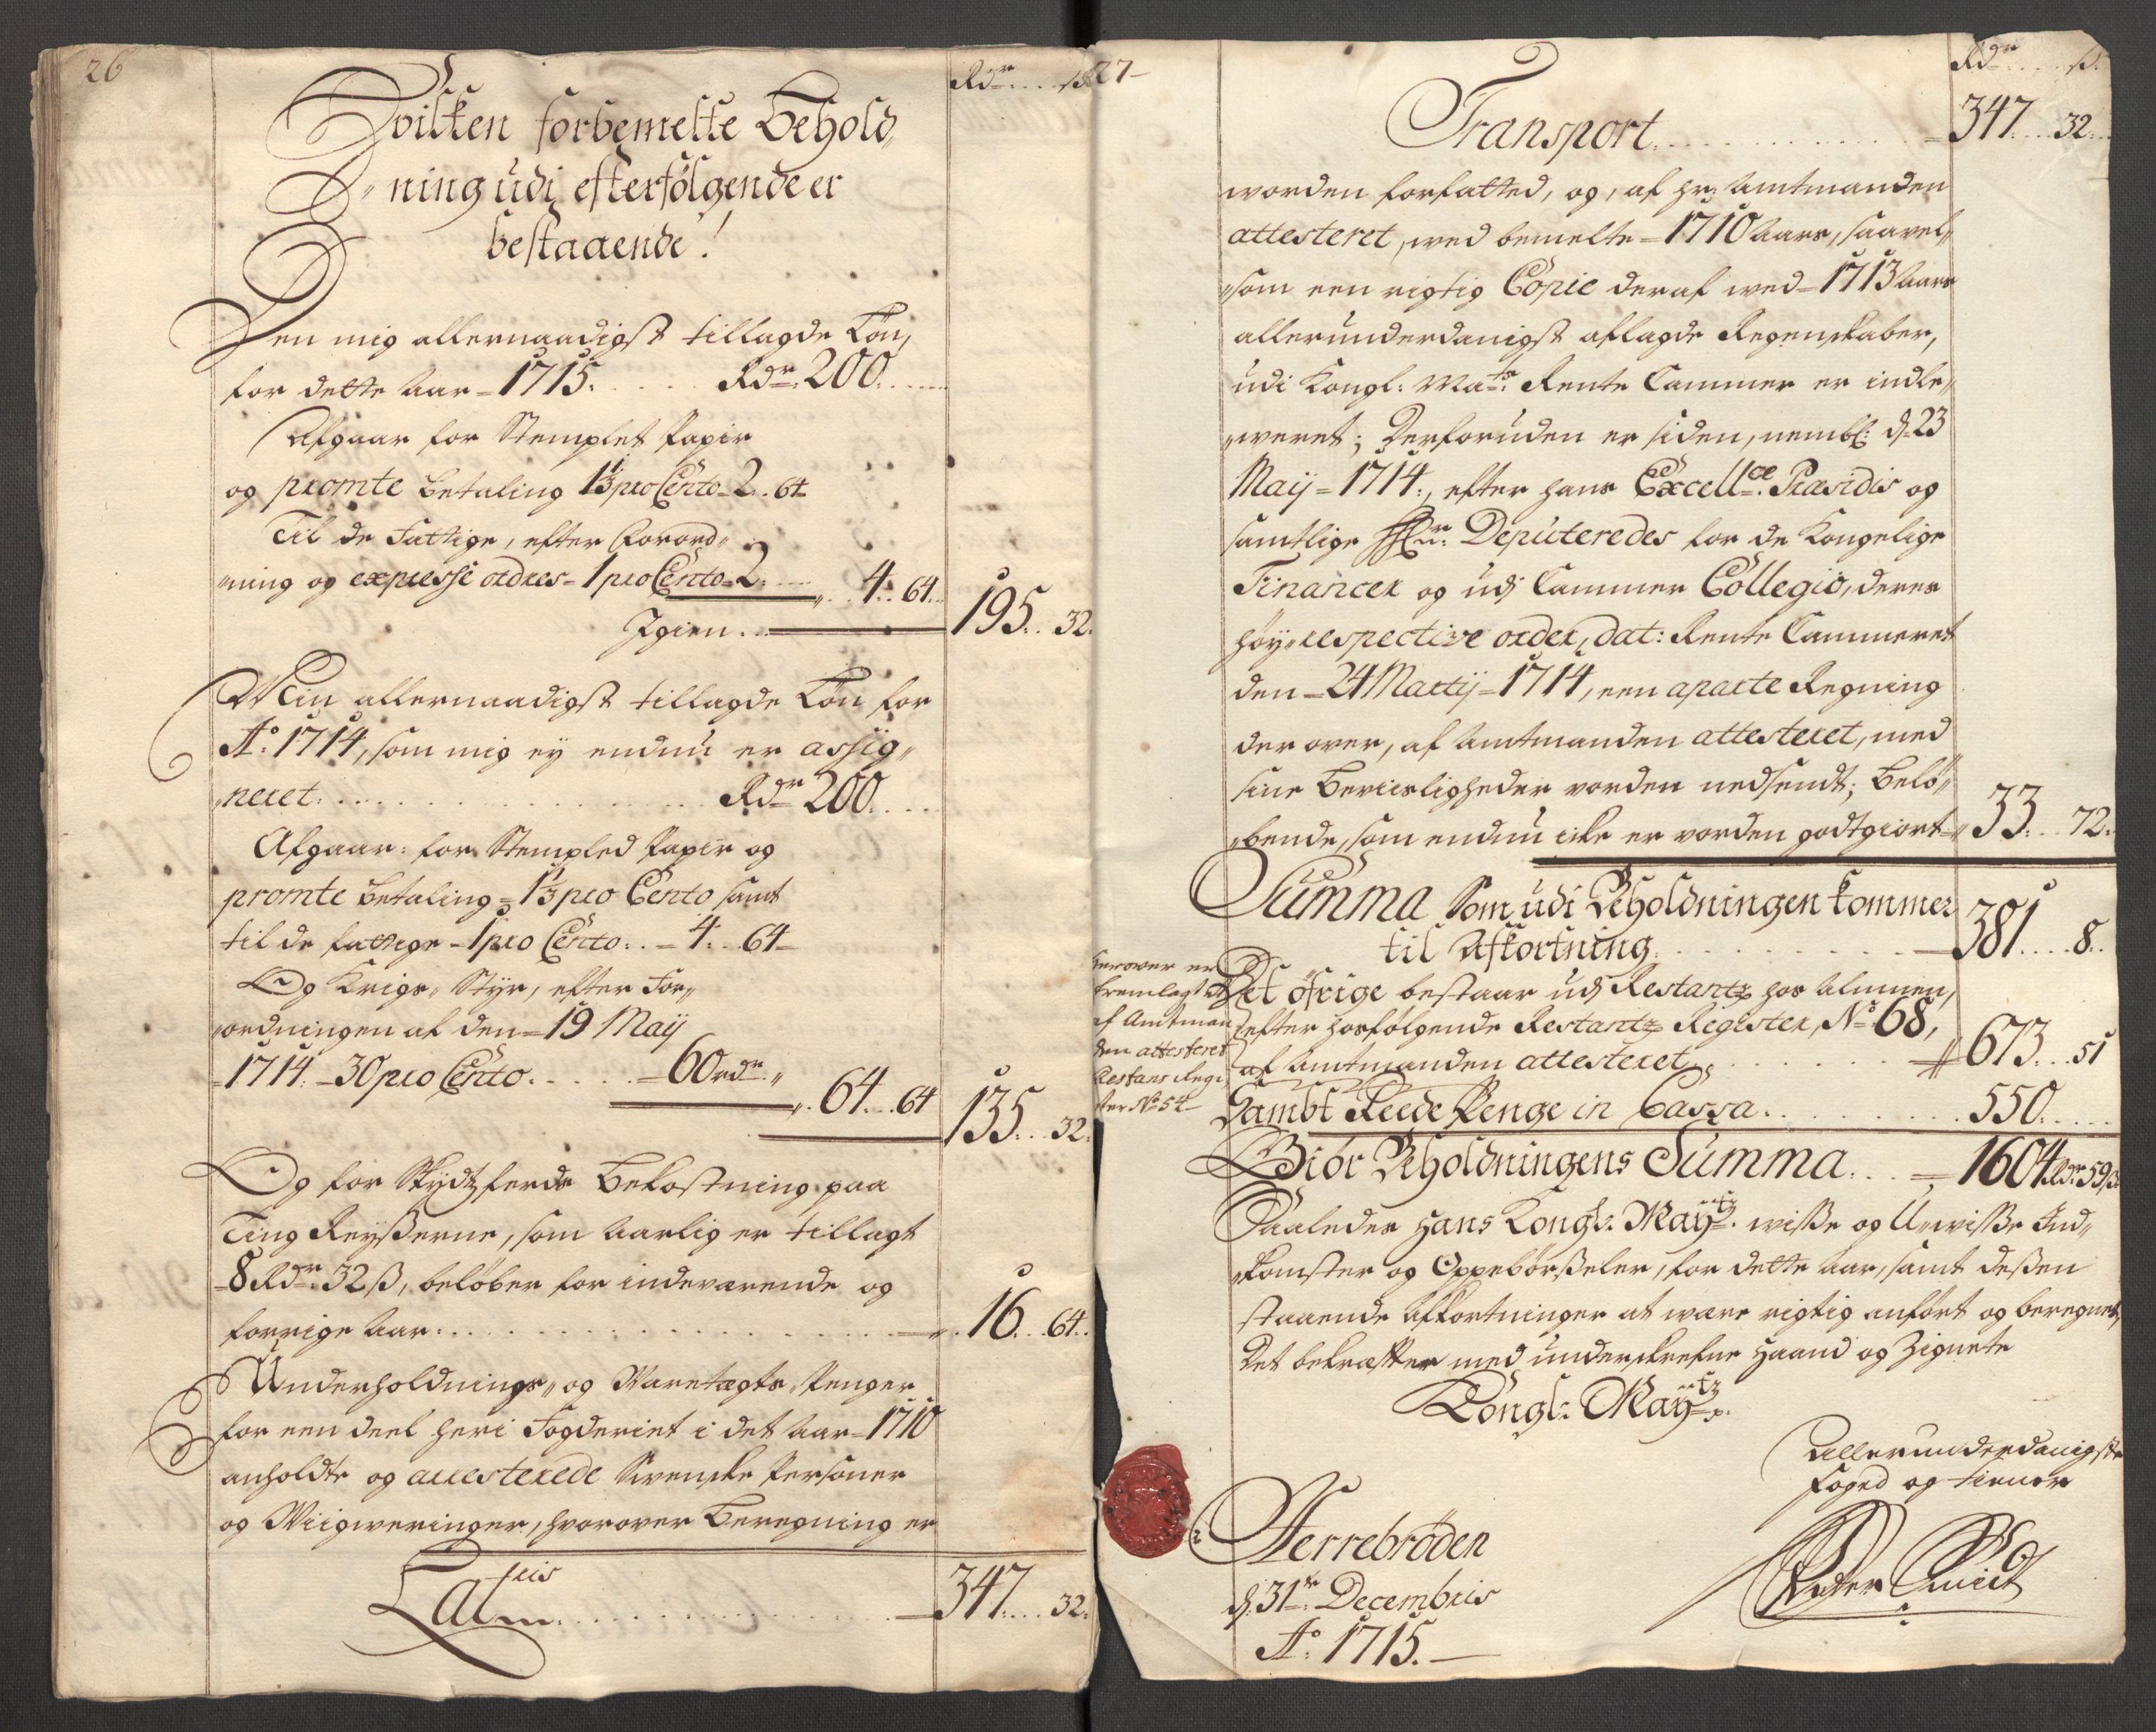 26
Rdr. ß
Hvilken forbemelte Behold„
„ning udi efterfölgende er
bestaaende!
Den mig allernaadigst tillagde Lön,
for dette Aar = 1715. Rdr. 200.
Afgaar for Stemplet Papir
og promte betaling 1⅓ pro Cento 2. 64
Til de Fattige, efter Forord„
„ning og expresse ordres = 1 pro Cento = 2. 4. 64.
Igien. 195. 32.
Min allernaadigst tillagde Lön for
Ao. 1714, som mig ey endnu er assig„
„neret. Rdr 200.
Afgaar: for Stempled Papir og
promte betaling = 1⅓ pro Cento samt
til de fattige = 1 pro Cento. 4. 64
Og Krigs„ Styr, efter For„
„ordningen af den = 19 Maÿ
= 1714. = 30 pro Cento. = 60 rdr. „
64. 64 135. 32.
Og for Skydtzferds Bekostning paa
Ting Reÿserne, som Aarlig er tillagt
= 8 Rdr. 32 ß, belöber for indeværende og
forrige Aar. 16. 64.
Underholdnings„ og Varetægts„ Penger
for een deel heri Fogderiet i det Aar = 1710
anholdte og arresterede Svenske Personer
og , hvorover Beregning er
Lateris 347. 32.
27
Rdr. ß.
Transport. 347. 32.
worden forfatted, og, af Hr: Amtmanden
attesteret, wed bemelte = 1710 Aars, saavel„
„som een rigtig Copie deraf wed = 1713 Aars
allerunderdanigst aflagde Regenskaber,
udi Kongl: Mats. Rente Cammer er indle„
„weret; Derforuden er siden, nembl: d. 23
Maij = 1714., efter hans Excellce. Præsidis og
samtlige Hrr. Deputeredes for de Kongelige
Financer og udj Cammer Collegio, deres
höy„ respective order, dat: Rente Cammeret
den = 24 Martij = 1714, een aparte Regning
derover, af Amtmanden attesteret, med
sine Beviisligheder vorden nedsendt; Belö„
„bende, som endnu icke er vorden godtgiort = 33. 72.
Summa Som udi Beholdningen kommer
til Afkortning. 381. 8.
Herover er
fremlagt et
af Amtman
den attesteret
Restans Regi
ster No 54
Det öfrige bestaar udj Restantz hos Almuen,
efter hosfølgende Restantz Register, No. 68,
af Amtmanden attesteret 673. 51
Sambt Reede Penge in Cassa. 550.
Giör Beholdningens Summa. = 1604 Rdr. 59 ß
Saaledes Hans Kongl: Maytz. wisse og Uwisse Ind„
„komster og Oppebörseler, for dette Aar, samt dessen
staaende Afkortninger at være rigtig anfört og beregnet,
Det bekræfter med underskrefne Haand og Zignete
Kongl: Maytz.
Allerunderdanigste
Foged og tienere
Peder Smidt
Herrebröden
d. 31te Decembris
Ao. 1715.